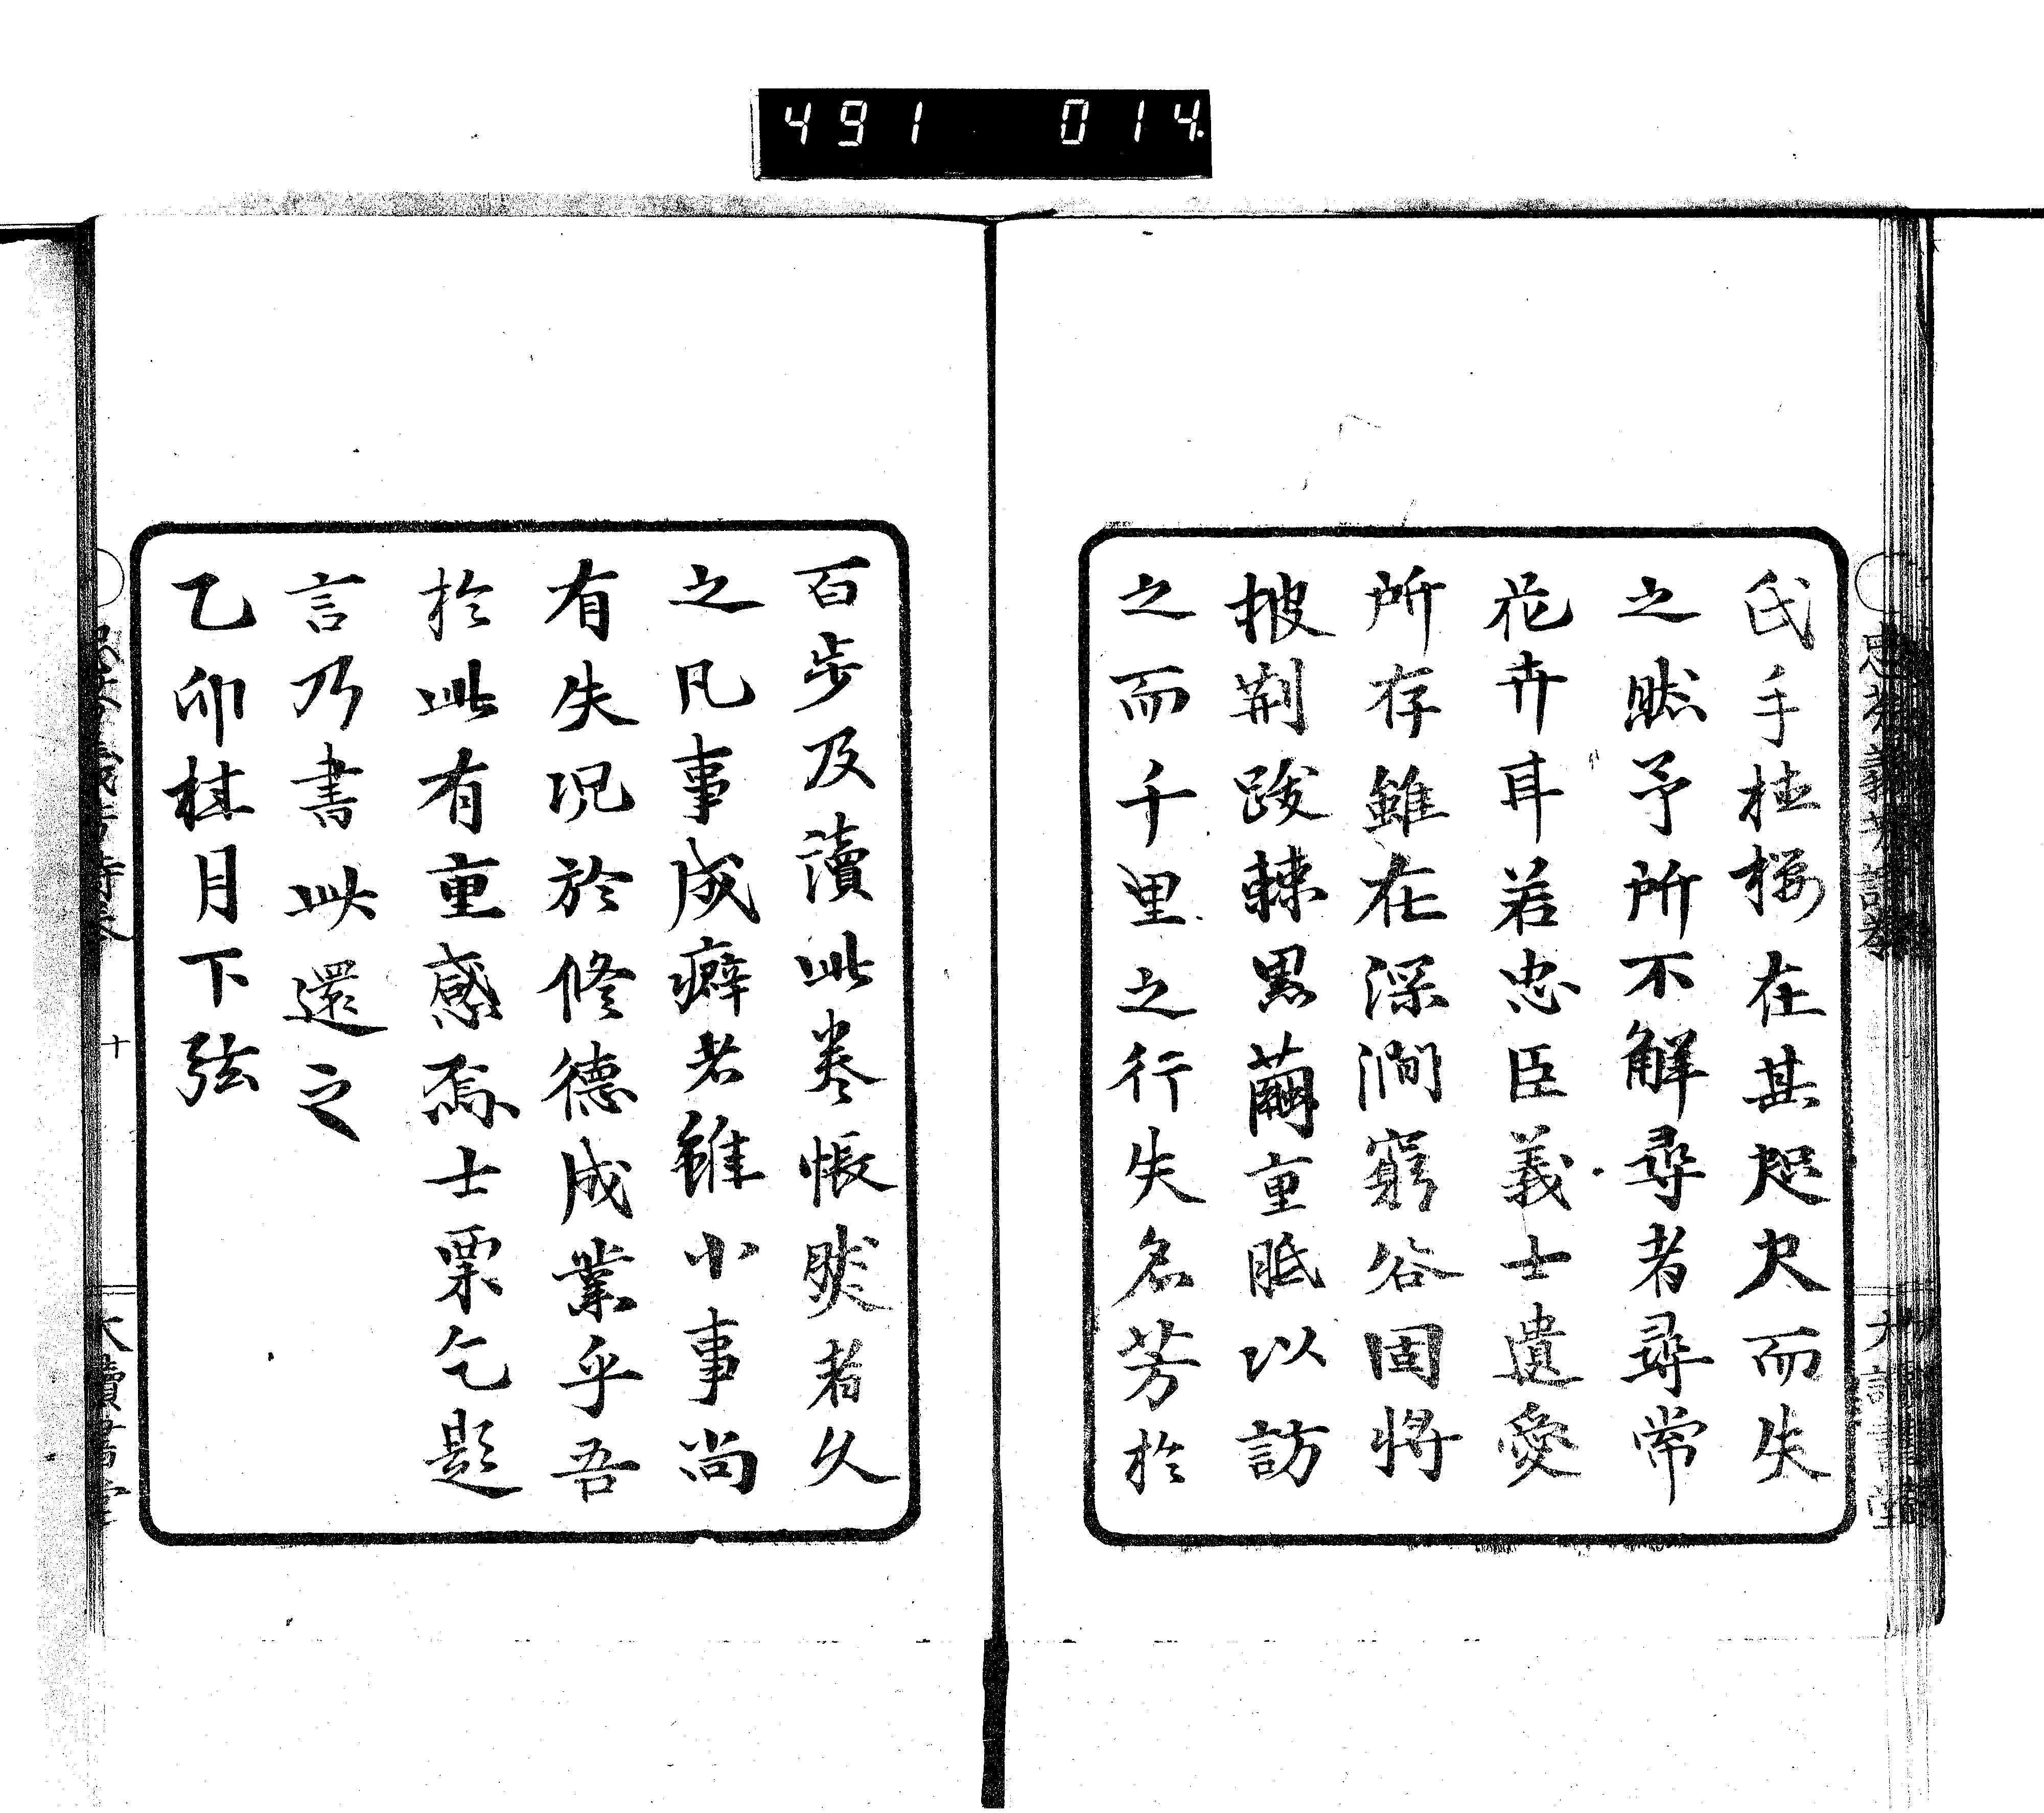 491 014
氏手植桜在甚処欠而失
之然予所不解尋者尋常
花卉耳若忠臣義士遺愛
所存雖在深澗窮谷固将
披荆跋棘黒繭重胝以訪
之而千里之行失名芳於
百歩及讀此巻悵然者久
之凡事成癖者雖小事尚
有失况於修徳成業乎吾
於此有重感焉士栗乞題
言乃書此還之
乙卯桂月下弦
十